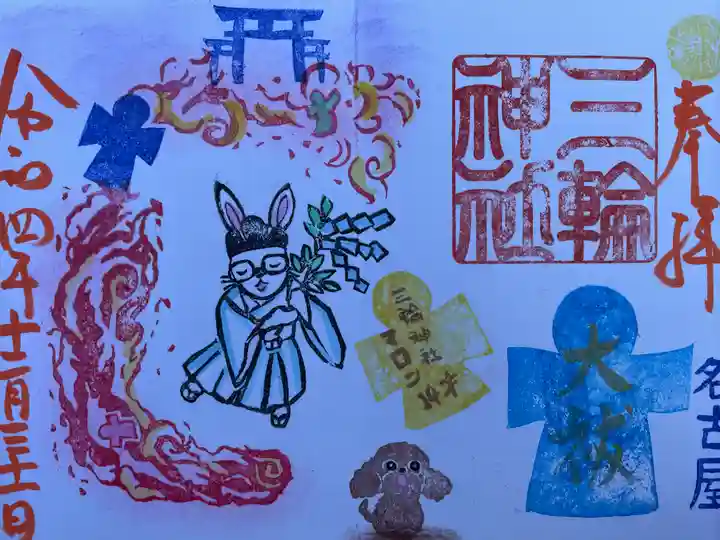 奉拝
三輪
神社
名古屋
大祓
三輪神社
マロン
14才
令和四年十二月三十一日